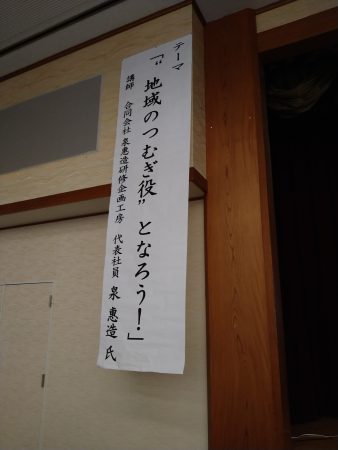 テーマ
「“地域のつむぎ役”となろう!」
講師 合同会社 泉惠造研修企画工房 代表社員 泉 惠造 氏